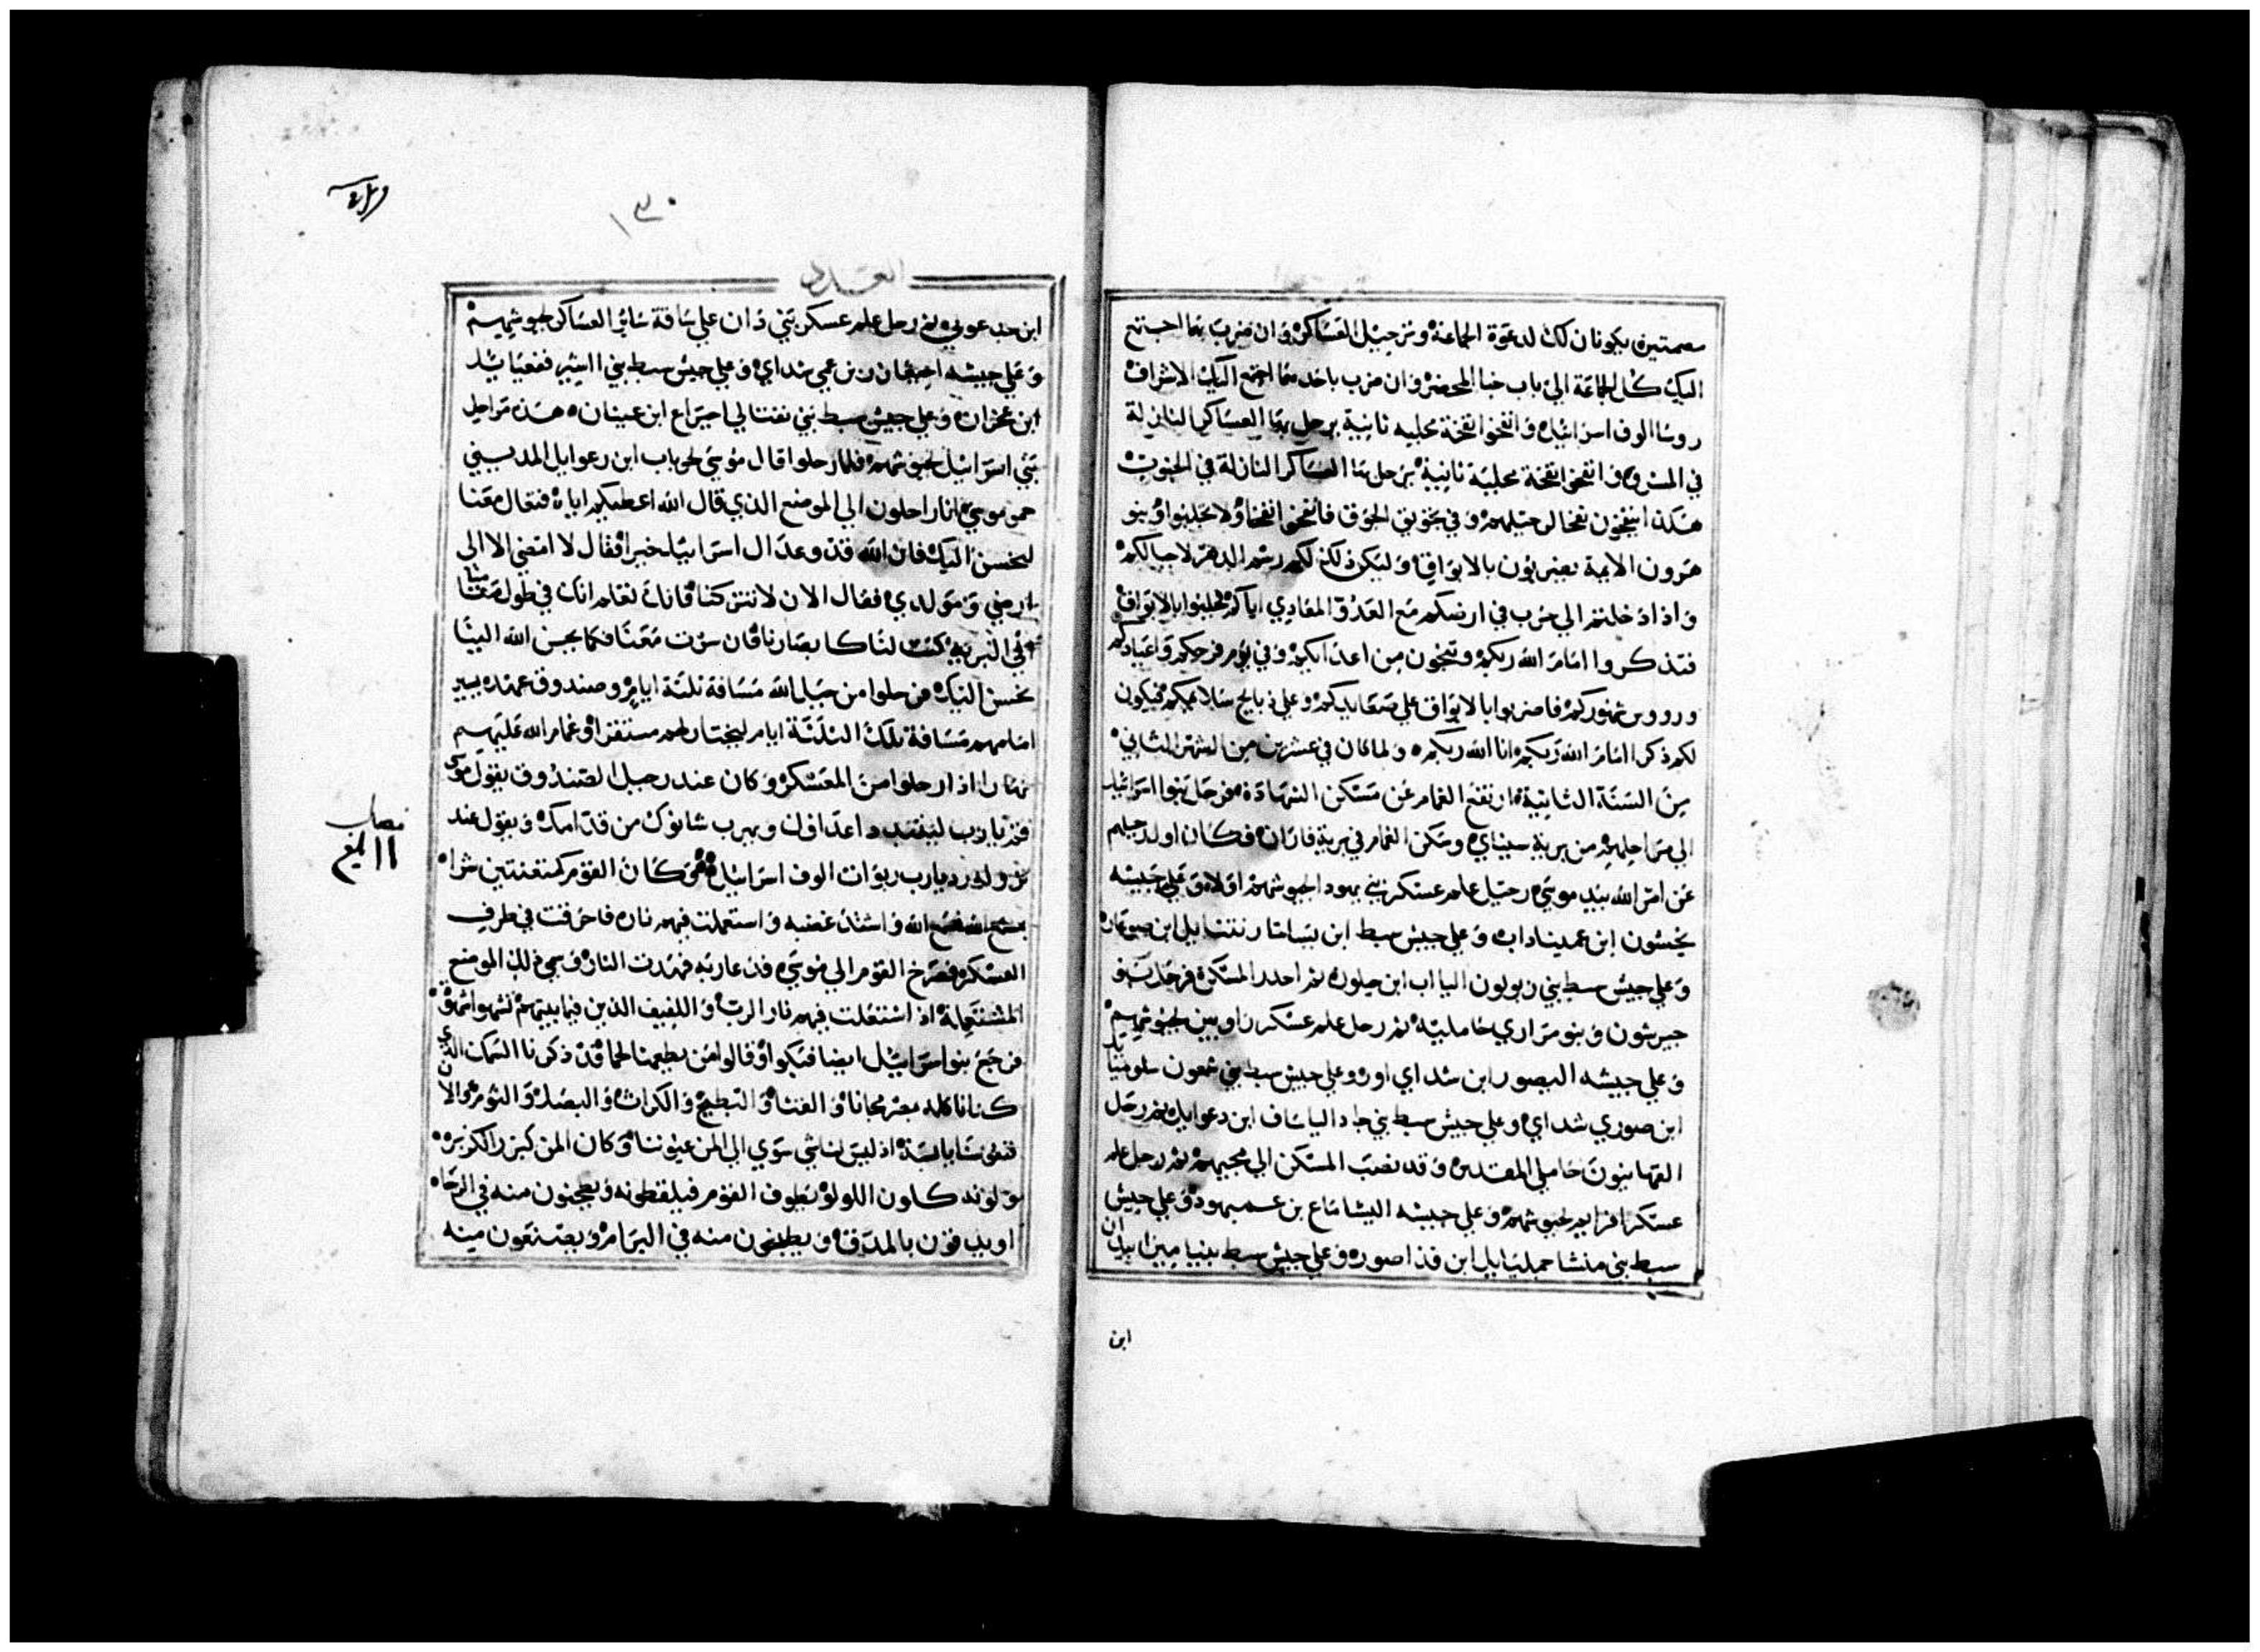 مصمتين يكونان لك لدعوة الجماعة وترحيل العساكر وان ضرب بهما اجتمع
اليك كل الجماعة الي باب خبا المحضر وان ضرب باحدهما اجتمع اليك الاشراف
روسا الوف اسرائيل وانفخوا نفخة مجلبه ثانية يرحل بها العساكر النازلة
في المشرق وانفخوا نفخة مجلبة ثانية يرحل بها العساكر النازلة في الجنوب
هكذا ينفخون نفخا لرحيلهم وفي تجويق الجوق فانفخوا نفخا ولا تجلبوا وبنو
هرون الايمة يضربون بالابواق وليكن ذلك لكم رسم الدهر لاجيالكم
واذا دخلتم الي حرب في ارضكم مع العدو المعادي اياكم فجلبوا بالابواق
فتذكروا امام الله ربكم وتنجون من اعدايكم وفي يوم فرحكم واعيادكم
وروس شهوركم فاضربوا بالابواق علي صعايدكم وعلي ذبايح سلامتكم فيكون
لكم ذكرا امام الله ربكم انا الله ربكم ولما كان في عشرين من الشهر الثاني
من السنة الثانية ارتفع الغمام عن مسكن الشهادة فرحل بنوا اسرائيل
الي مراحلهم من برية سيناي وسكن الغمام في برية فاران فكان اول رحيلهم
عن امر الله بيد موسي رحيل علم عسكر بني يهودا لجيوشهم اولا وعلي جيشه
نحشون ابن عميناداب وعلي جيش سبط ابن يساخار نتنايل ابن صوغار
وعلي جيش سبط بني زبولون الياب ابن حيلون ثم احدر المسكن فرحل بنو
جيرشون وبنو مراري حامليه ثم رحل علم عسكر راوبين لجيوشهم
وعلي جيشه اليصور ابن شداي اور وعلي جيش سبط بني شمعون سلوميايل
ابن صوري شداي وعلي جيش سبط بني جاد الياساف ابن دعوايل ثم رحل
القهاتيون حاملي المقدس وقد نصب المسكن الي مجيهم ثم رحل علم
عسكر افرايم لجيوشهم وعلي جيشه اليشاماع بن عميهود وعلي جيش
سبط بني منشا جمليايل ابن فداصور وعلي جيش سبط بنيامين ابيدان
ابن
١٣٠
العدد
ابن جدعوني ثم رحل علم عسكر بني دان علي ساقة سائر العساكر لجيوشهم
وعلي جيشه احيعازر بن عمي شداي وعلي جيش سبط بني اشير فغعيايل
ابن عخران وعلي جيش سبط بني نفتالي احيراع ابن عينان هذه مراحل
بني اسرائيل لجيوشهم فلما رحلوا قال موسي لحوباب ابن رعوايل المديني
حمو موسي انا راحلون الي الموضع الذي قال الله اعطيكم اياه فتعال معنا
لنحسن اليك فان الله قد وعد ال اسرائيل خيرا فقال لا امضي الا الي
ارضي ومولدي فقال الان لا تتركنا فانك تعلم انك في طول مقامنا
في البرية كنت لنا كابصارنا فان سرت معنا فكما يحسن الله الينا
نحسن اليك فرحلوا من جبل الله مسافة ثلثة ايام وصندوق عهده يسير
امامهم مسافة تلك الثلثة ايام ليختار لهم مستقرا وغمام الله عليهم
نهارا اذا رحلوا من المعسكر وكان عند رحيل الصندوق يقول موسي
قم يارب ليتبدد اعداوك ويهرب شانوك من قدامك ويقول عند
نزوله رد يارب ربوات الوف اسرائيل وكان القوم كمتعنتين شرا
فسمع الله واشتد غضبه واستعملت فيهم نار فاحرقت في طرف
العسكر فصرخ القوم الي موسي فدعا ربه فهدت النار وسمي ذلك الموضع
المشتعلة اذ اشتعلت فيهم نار الرب واللفيف الذين فيما بينهم تشهوا شهوة
فرجع بنو اسرائيل ايضا فبكوا وقالوا من يطعمنا لحما قد ذكرنا السمك الذي
كنا ناكله بمصر مجانا والقثا والبطيخ والكراث والبصل والثوم والان
فنفوسنا يابسة اذ ليس لنا شي سوي الي المن عيوننا وكان المن كبزر الكزبره
ولونه كلون اللولو يطوف القوم فيلقطونه ويطحنون منه في الرحا
او يدقون بالمدق ويطبخون منه في البرام ويصنعون منه